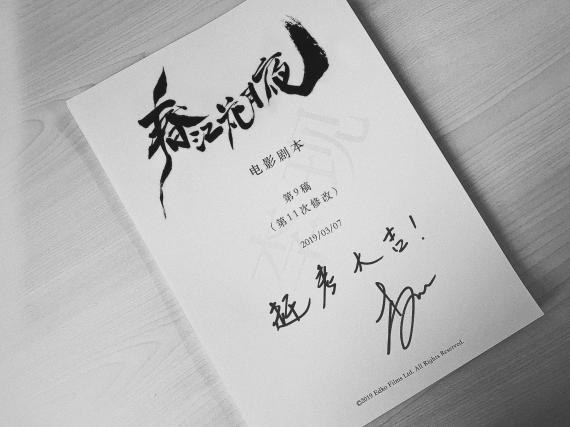 春江花月夜
电影剧本
第9稿
(第11次修改)
2019/03/07
大吉!
©2019 Edko Films Ltd. All Rights Reserved.